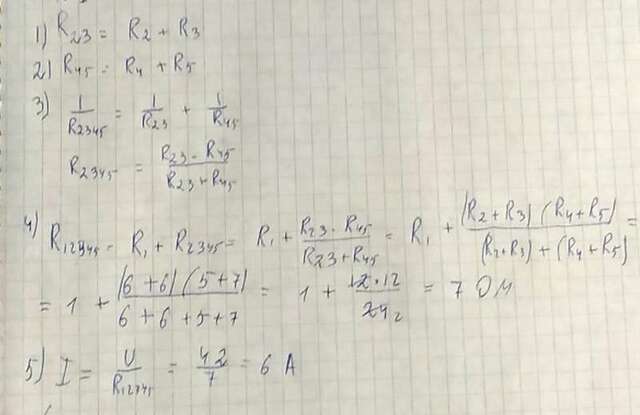 1) R₂₃ = R₂ + R₃
2) R₄₅ = R₄ + R₅
3) 1/R₂₃₄₅ = 1/R₂₃ + 1/R₄₅
R₂₃₄₅ = R₂₃ · R₄₅ / R₂₃ + R₄₅
4) R₁₂₃₄₅ = R₁ + R₂₃₄₅ = R₁ + R₂₃ · R₄₅ / R₂₃ + R₄₅ = R₁ + (R₂ + R₃) (R₄ + R₅) / (R₂ + R₃) + (R₄ + R₅) =
= 1 + (6 + 6) (5 + 7) / 6 + 6 + 5 + 7 = 1 + 12 · 12 / 24 ₂ = 7 Ом
5) I = U / R₁₂₃₄₅ = 42 / 7 = 6 А